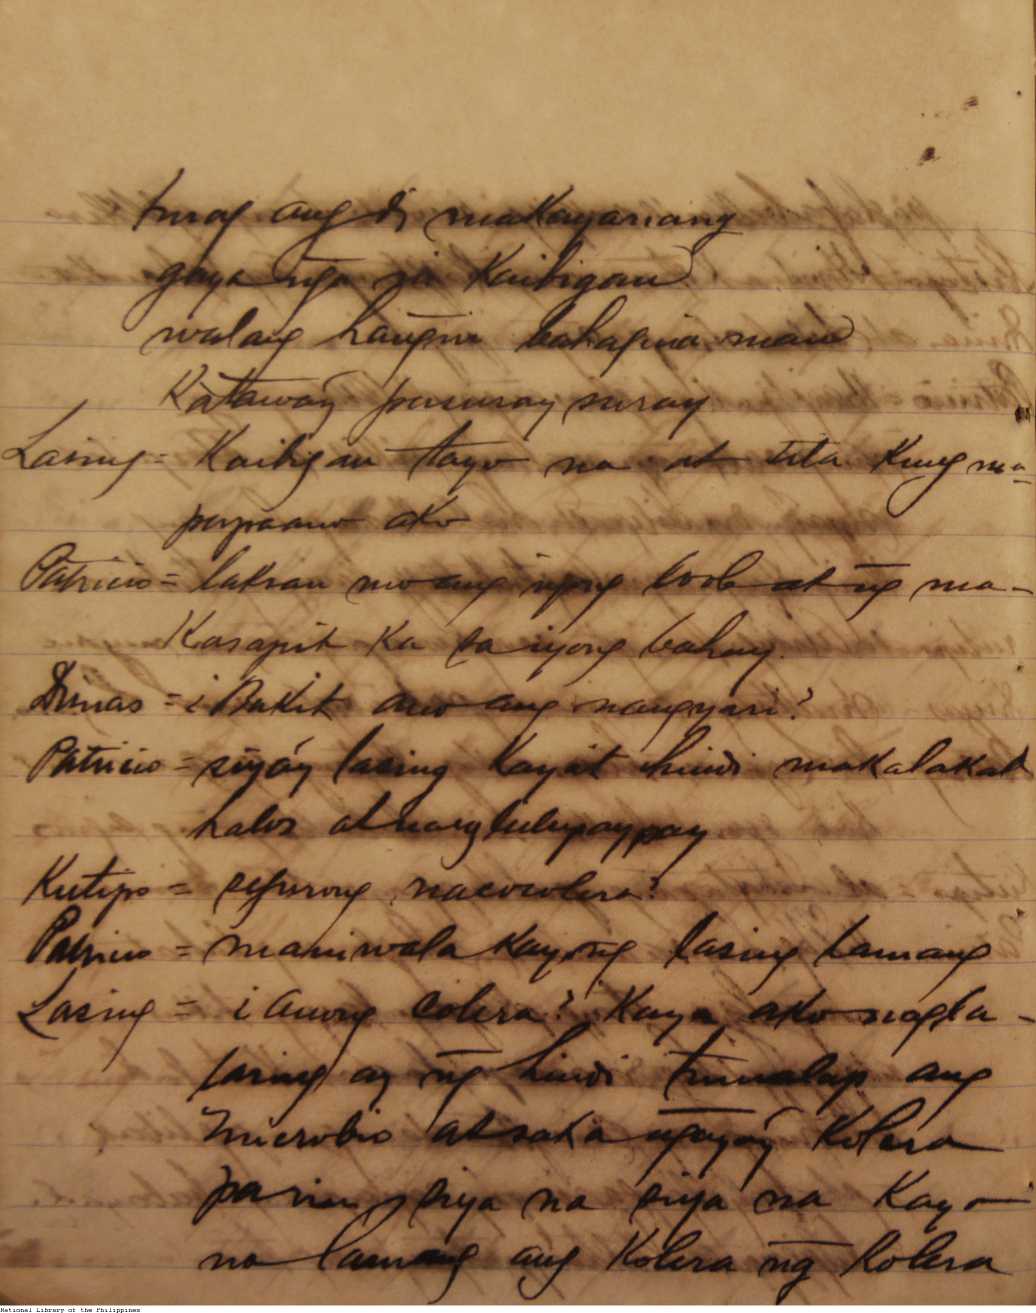 ang di makayanang
gaya nga ni Kaibigan
walang hangin bahagina man
Kataway pasuray suray
Lasing = Kaibigan tayo na at tila Kung ma-
papaano ako
Patricio = laksan mo ang iyong loob at ng ma-
Kasapit Ka sa iyong bahay.
Dimas = ¿Bakit ano ang nangyari?
Patricio = siyáy lasing Kayat hindi makalakad
halos at naglulupaypay
Kutipio = segurong nacocolera?
Patricio = maniwala Kayong lasing lamang
Lasing = ¿anong colera? Kaya ako nagla-
lasing ay ng hindi tumalap ang
Microbio at saka ngayóy Kolera
parin, siya na siya na Kayo
na lamang ang Kolera ng Kolera
National Library of the Philippines